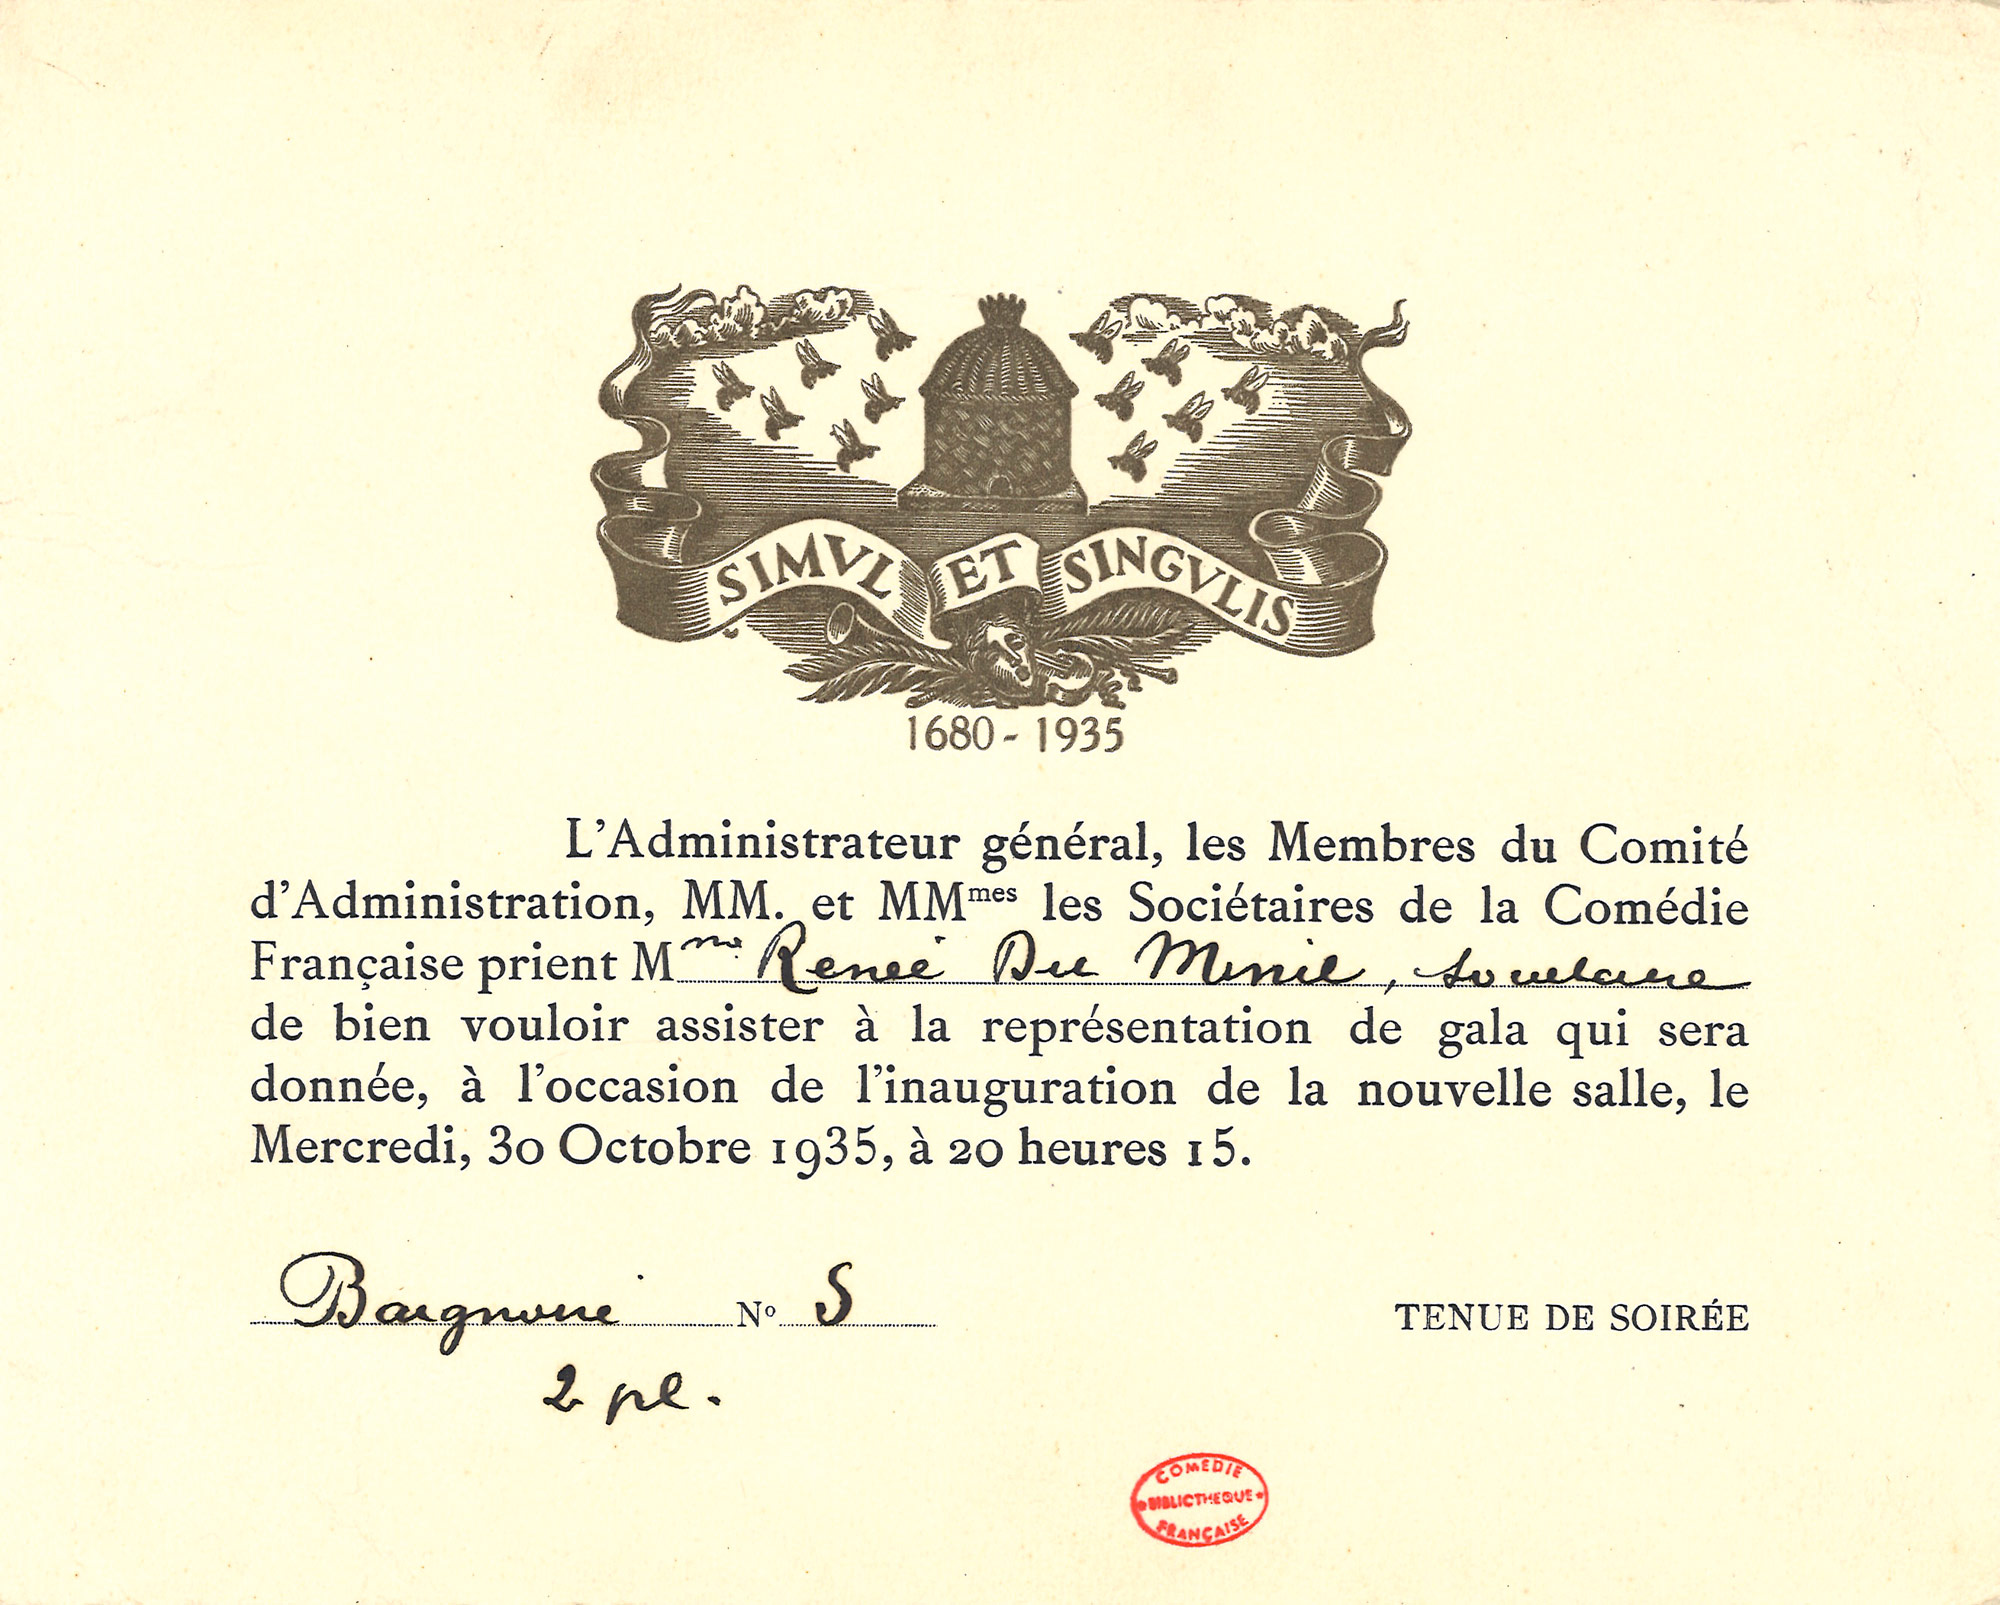 SIMVL ET SINGVLIS
1680 - 1935
L'Administrateur général, les Membres du Comité
d'Administration, MM. et MMmes les Sociétaires de la Comédie
Française prient Mme Renée Du Minil, Sociétaire
de bien vouloir assister à la représentation de gala qui sera
donnée, à l'occasion de l'inauguration de la nouvelle salle, le
Mercredi, 30 Octobre 1935, à 20 heures 15.
Baignoire No S
TENUE DE SOIRÉE
2 pl.
COMÉDIE
BIBLIOTHEQUE
FRANÇAISE